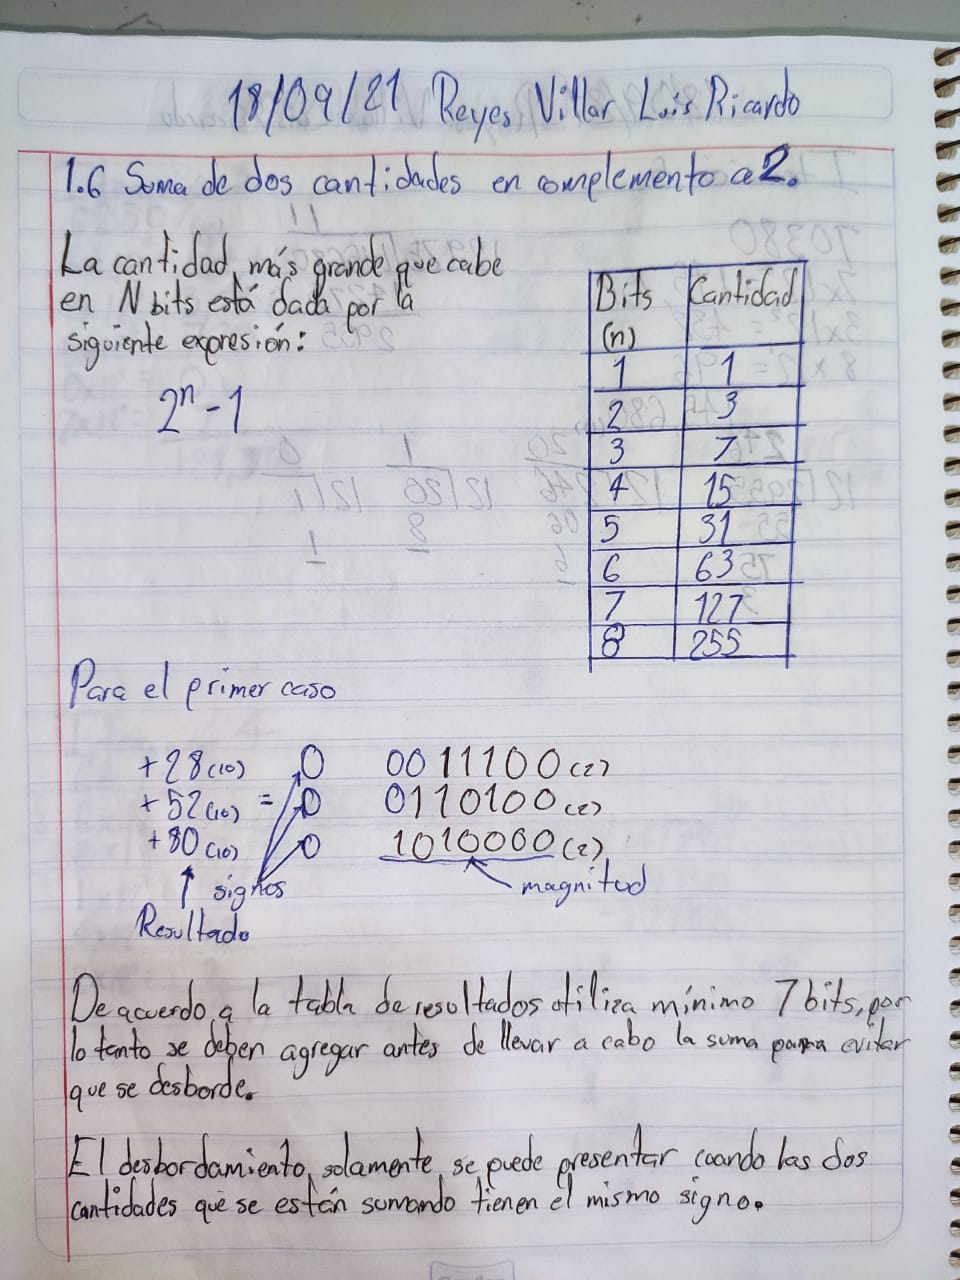 18/09/21 Reyes Villar Luis Ricardo
1.6 Suma de dos cantidades en complemento a 2.
La cantidad más grande que cabe
en N bits está dada por la
siguiente expresión:
2ⁿ - 1
Bits (n) Cantidad
1 1
2 3
3 7
4 15
5 31
6 63
7 127
8 255
Para el primer caso
+28(10) 0 0011100(2)
+52(10) = 0 0110100(2)
+80(10) 0 1010000(2)
signos magnitud
Resultado
De acuerdo a la tabla de resultados utiliza mínimo 7 bits, por
lo tanto se deben agregar antes de llevar a cabo la suma para evitar
que se desborde.
El desbordamiento, solamente se puede presentar cuando las dos
cantidades que se están sumando tienen el mismo signo.